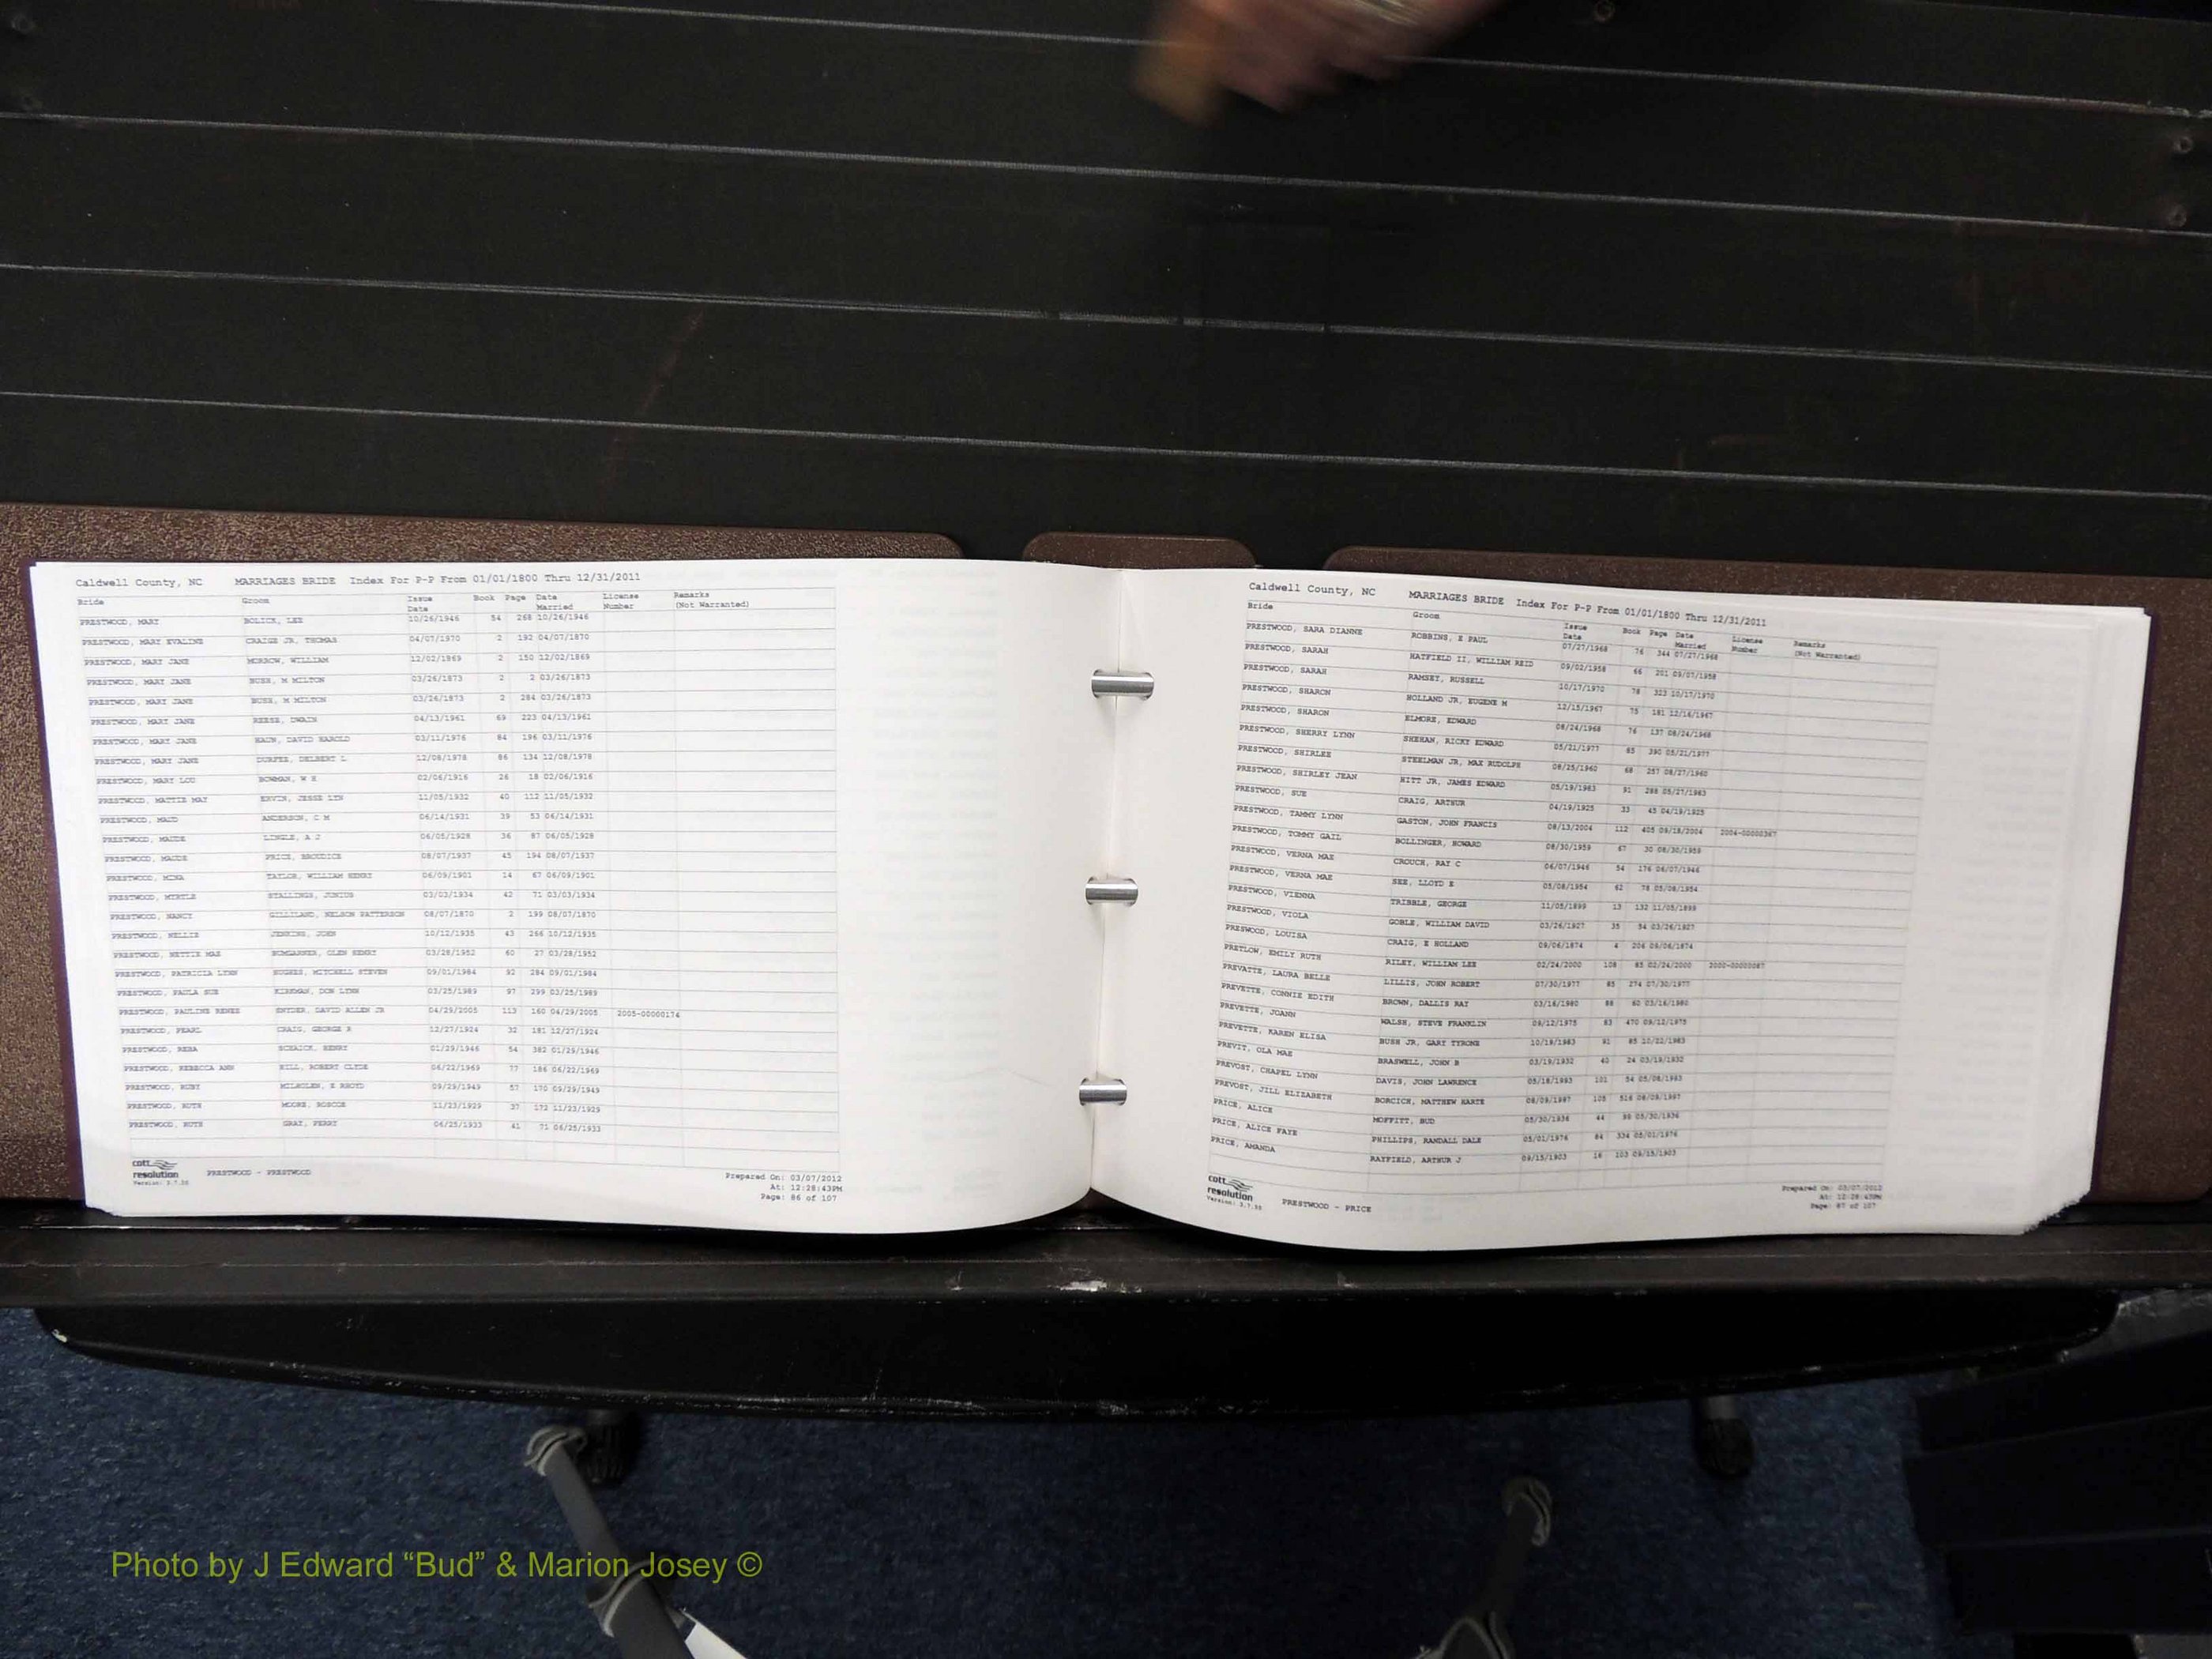 Caldwell County, NC MARRIAGES BRIDE Index For P-P From 01/01/1800 Thru 12/31/2011
Bride Groom Issue Date Book Page Date Married License Number Remarks (Not Warranted)
PRESTWOOD, MARY BOLICK, LEE 10/26/1946 54 268 10/26/1946
PRESTWOOD, MARY EVALINE CRAIGE JR, THOMAS 04/07/1970 2 192 04/07/1870
PRESTWOOD, MARY JANE MORROW, WILLIAM 12/02/1869 2 150 12/02/1869
PRESTWOOD, MARY JANE BUSH, M MILTON 03/26/1873 2 2 03/26/1873
PRESTWOOD, MARY JANE BUSH, M MILTON 03/26/1873 2 284 03/26/1873
PRESTWOOD, MARY JANE REESE, DWAIN 04/13/1961 69 223 04/13/1961
PRESTWOOD, MARY JANE HAUN, DAVID HAROLD 03/11/1976 84 196 03/11/1976
PRESTWOOD, MARY JANE DURFEE, DELBERT L 12/08/1978 86 134 12/08/1978
PRESTWOOD, MARY LOU BOWMAN, W H 02/06/1916 26 18 02/06/1916
PRESTWOOD, MATTIE MAY ERVIN, JESSE LYN 11/05/1932 40 112 11/05/1932
PRESTWOOD, MAUD ANDERSON, C M 06/14/1931 39 53 06/14/1931
PRESTWOOD, MAUDE LINGLE, A J 06/05/1928 36 87 06/05/1928
PRESTWOOD, MAUDE PRICE, BROUDICE 08/07/1937 45 194 08/07/1937
PRESTWOOD, MINA TAYLOR, WILLIAM HENRY 06/09/1901 14 67 06/09/1901
PRESTWOOD, MYRTLE STALLINGS, JUNIUS 03/03/1934 42 71 03/03/1934
PRESTWOOD, NANCY GILLILAND, NELSON PATTERSON 08/07/1870 2 199 08/07/1870
PRESTWOOD, NELLIE JENKINS, JOHN 10/12/1935 43 266 10/12/1935
PRESTWOOD, NETTIE MAE BUMGARNER, GLEN HENRY 03/28/1952 60 27 03/28/1952
PRESTWOOD, PATRICIA LYNN HUGHES, MITCHELL STEVEN 09/01/1984 92 284 09/01/1984
PRESTWOOD, PAULA SUE KIRKMAN, DON LYNN 03/25/1989 97 299 03/25/1989
PRESTWOOD, PAULINE RENEE SNYDER, DAVID ALLEN JR 04/29/2005 113 160 04/29/2005 2005-00000174
PRESTWOOD, PEARL CRAIG, GEORGE R 12/27/1924 32 181 12/27/1924
PRESTWOOD, REBA SCHAICK, HENRY 01/29/1946 54 382 01/29/1946
PRESTWOOD, REBECCA ANN HILL, ROBERT CLYDE 06/22/1969 77 186 06/22/1969
PRESTWOOD, RUBY 09/29/1949 57 170 09/29/1949
PRESTWOOD, RUTH MOORE, ROSCOE 11/23/1929 37 172 11/23/1929
PRESTWOOD, RUTH GRAY, PERRY 06/25/1933 41 71 06/25/1933
cott resolution
Version: 3.7.30
PRESTWOOD - PRESTWOOD
Prepared On: 03/07/2012
At: 12:28:43PM
Page: 86 of 107
Caldwell County, NC MARRIAGES BRIDE Index For P-P From 01/01/1800 Thru 12/31/2011
Bride Groom Issue Date Book Page Date Married License Number Remarks (Not Warranted)
PRESTWOOD, SARA DIANNE ROBBINS, E PAUL 07/27/1968 76 344 07/27/1968
PRESTWOOD, SARAH HATFIELD II, WILLIAM REID 09/02/1958 66 201 09/07/1958
PRESTWOOD, SARAH RAMSEY, RUSSELL 10/17/1970 78 323 10/17/1970
PRESTWOOD, SHARON HOLLAND JR, EUGENE M 12/15/1967 75 181 12/16/1967
PRESTWOOD, SHARON ELMORE, EDWARD 08/24/1968 76 137 08/24/1968
PRESTWOOD, SHERRY LYNN SHEHAN, RICKY EDWARD 05/21/1977 85 390 05/21/1977
PRESTWOOD, SHIRLEE STEELMAN JR, MAX RUDOLPH 08/25/1960 68 257 08/27/1960
PRESTWOOD, SHIRLEY JEAN HITT JR, JAMES EDWARD 05/19/1983 91 288 05/27/1983
PRESTWOOD, SUE CRAIG, ARTHUR 04/19/1925 33 45 04/19/1925
PRESTWOOD, TAMMY LYNN GASTON, JOHN FRANCIS 08/13/2004 112 405 09/18/2004 2004-00000367
PRESTWOOD, TOMMY GAIL BOLLINGER, HOWARD 08/30/1959 67 30 08/30/1959
PRESTWOOD, VERNA MAE CROUCH, RAY C 06/07/1946 54 176 06/07/1946
PRESTWOOD, VERNA MAE SEE, LLOYD E 05/08/1954 62 78 05/08/1954
PRESTWOOD, VIENNA TRIBBLE, GEORGE 11/05/1899 13 132 11/05/1899
PRESTWOOD, VIOLA GOBLE, WILLIAM DAVID 03/26/1927 35 54 03/26/1927
PRESWOOD, LOUISA CRAIG, E HOLLAND 09/06/1874 4 206 09/06/1874
PRETLOW, EMILY RUTH RILEY, WILLIAM LEE 02/24/2000 108 85 02/24/2000 2000-00000087
PREVATTE, LAURA BELLE LILLIS, JOHN ROBERT 07/30/1977 85 274 07/30/1977
PREVETTE, CONNIE EDITH BROWN, DALLIS RAY 03/16/1980 88 60 03/16/1980
PREVETTE, JOANN WALSH, STEVE FRANKLIN 09/12/1975 83 470 09/12/1975
PREVETTE, KAREN ELISA BUSH JR, GARY TYRONE 10/19/1983 91 85 10/22/1983
PREVIT, OLA MAE BRASWELL, JOHN B 03/19/1932 40 24 03/19/1932
PREVOST, CHAPEL LYNN DAVIS, JOHN LAWRENCE 05/18/1993 101 54 05/08/1993
PREVOST, JILL ELIZABETH BORCICH, MATTHEW HARTE 08/09/1997 105 516 08/09/1997
PRICE, ALICE MOFFITT, BUD 05/30/1936 44 99 05/30/1936
PRICE, ALICE FAYE PHILLIPS, RANDALL DALE 05/01/1976 84 334 05/01/1976
PRICE, AMANDA RAYFIELD, ARTHUR J 09/15/1903 16 103 09/15/1903
cott resolution
Version: 3.7.30
PRESTWOOD - PRICE
Prepared On: 03/07/2012
At: 12:28:43PM
Page: 87 of 107
Photo by J Edward “Bud” & Marion Josey ©